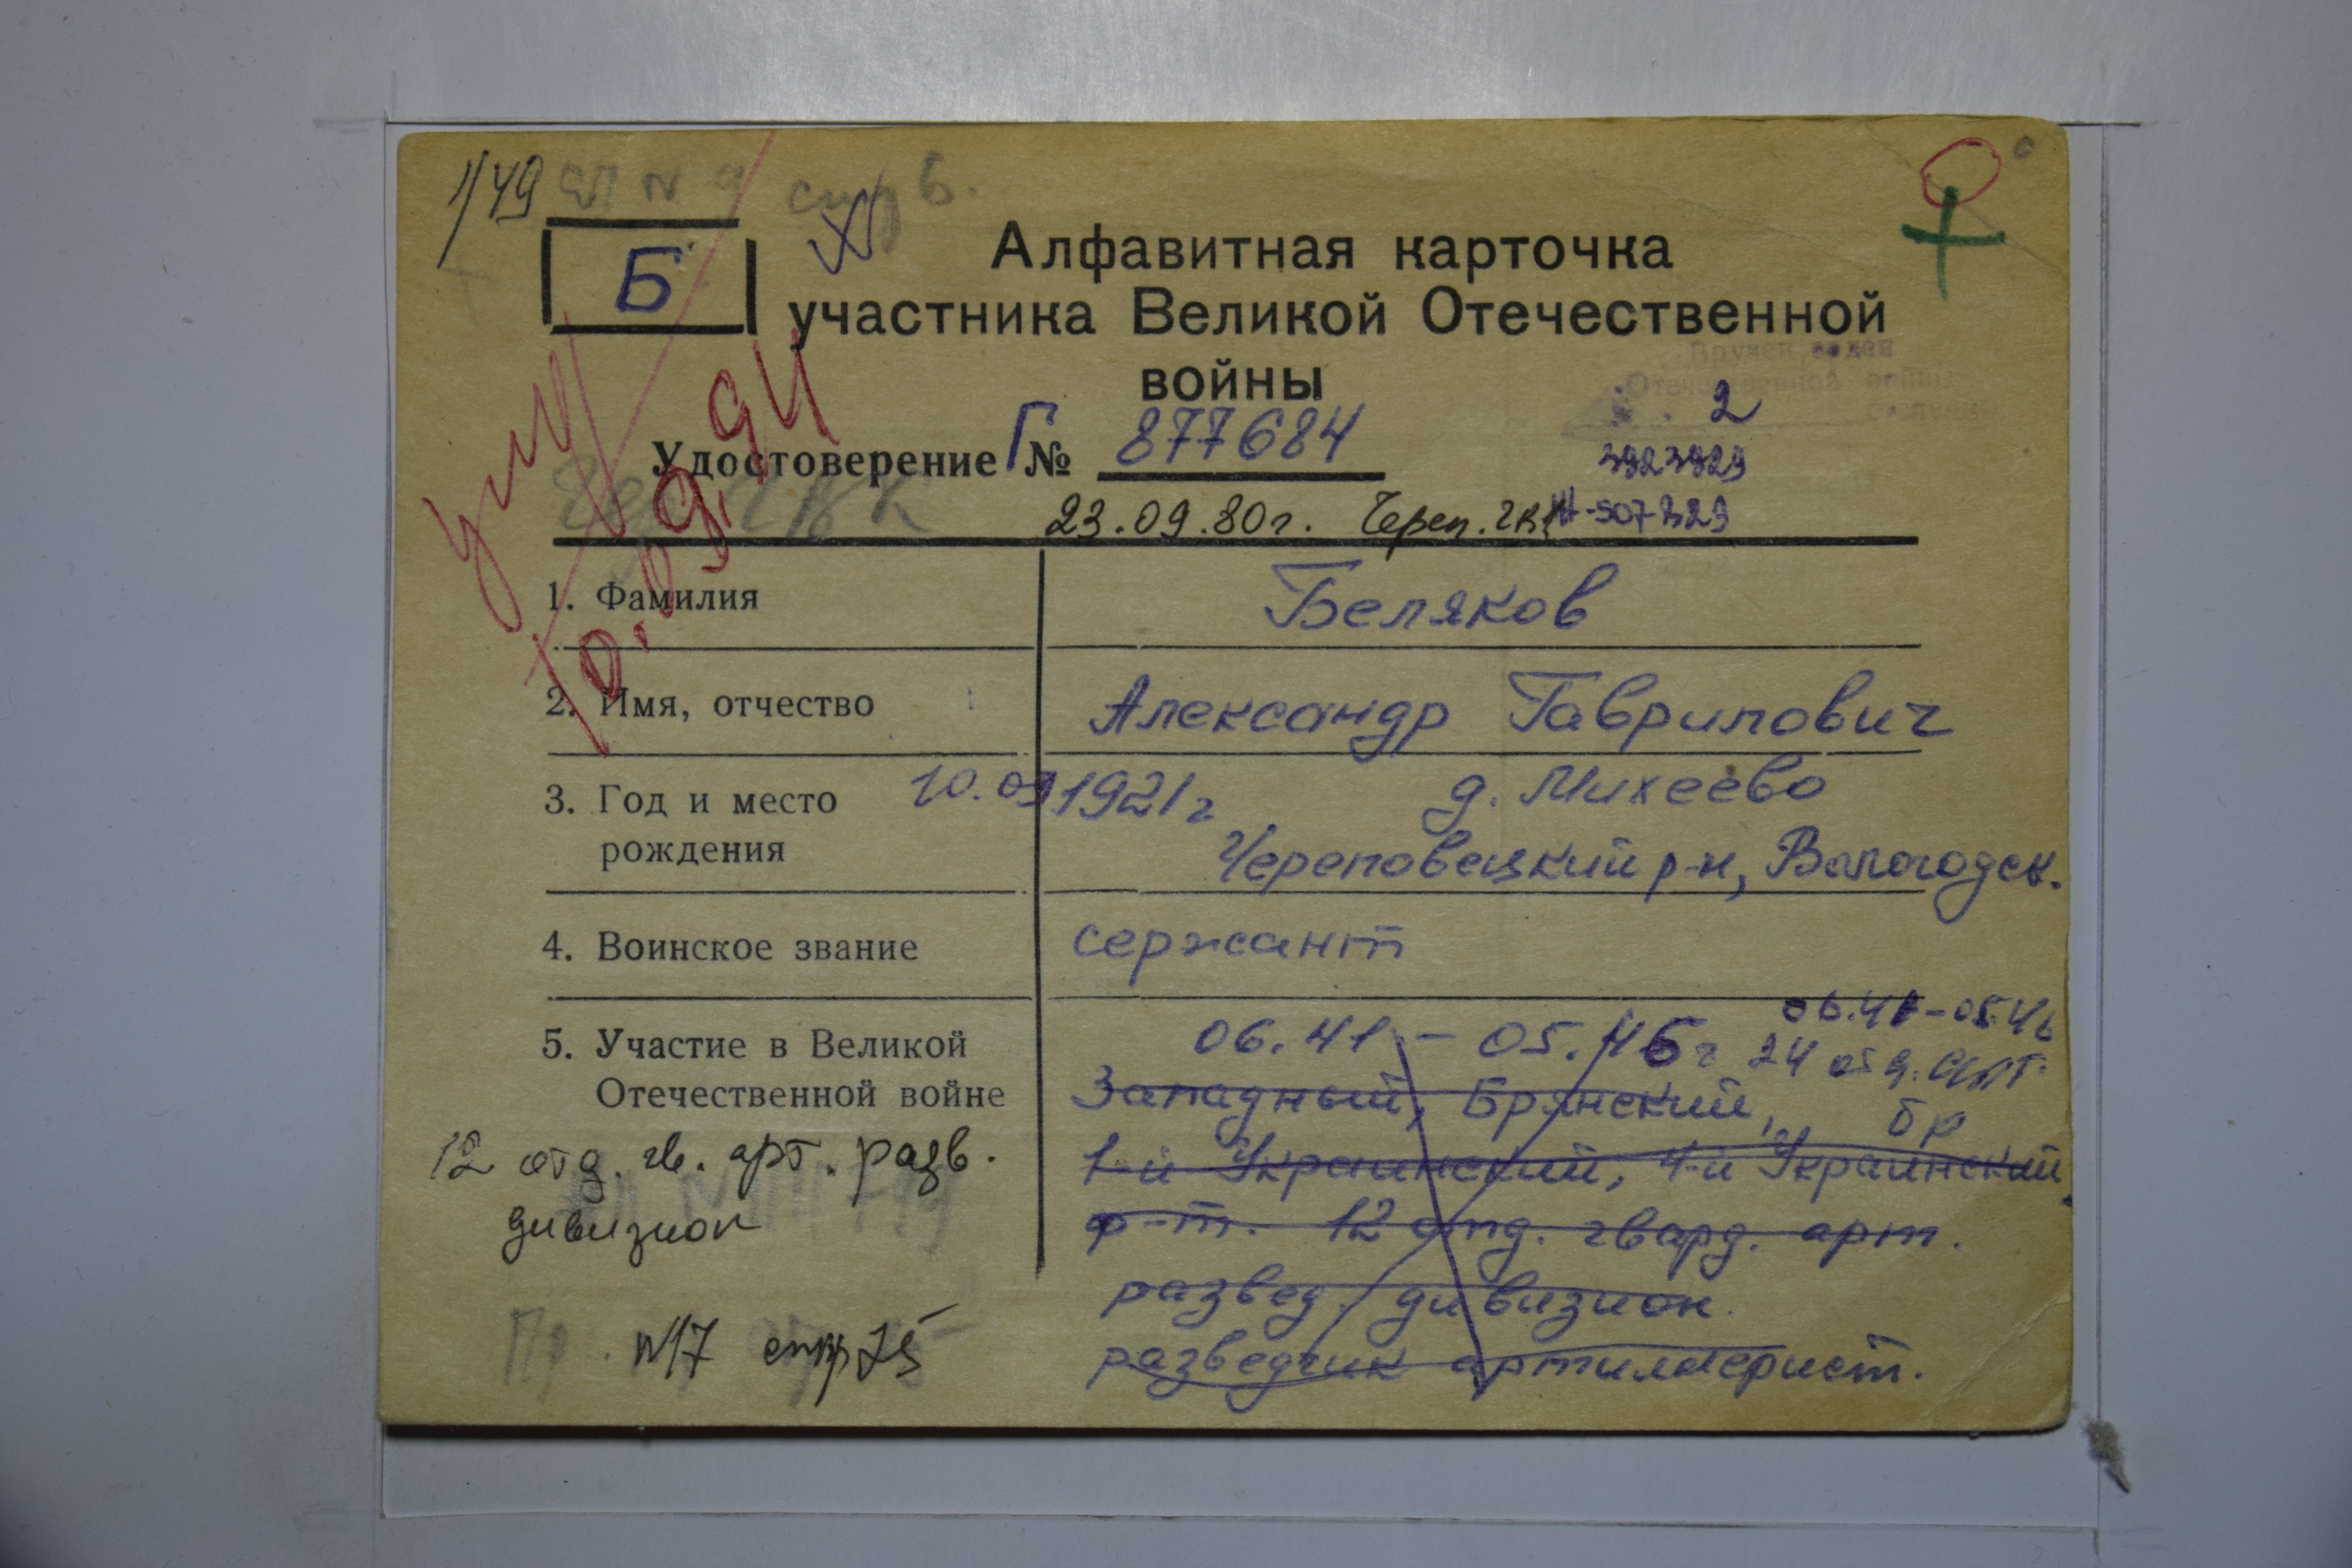 1/49
Б
Алфавитная карточка
участника Великой Отечественной
войны
Вручен орден
Отечественной войны
2
Удостоверение Г № 877684
3923929
23.09.80г. Череп. ГВК
умер
10.09.94
1. Фамилия Беляков
2. Имя, отчество Александр Гаврилович
3. Год и место рождения 10.09 1921г д. Михеево
Череповецкий р-н, Вологодск.
4. Воинское звание сержант
5. Участие в Великой Отечественной войне 06.41 - 05.46г
06.41-05.46
24 отд. арт.
бр
Западный, Брянский,
1-й Украинский, 4-й Украинский
ф-т. 12 отд. гвард. арт.
развед. дивизион.
разведчик артиллерист.
12 отд. гв. арт. разв.
дивизион
Пр. N17 стр 75